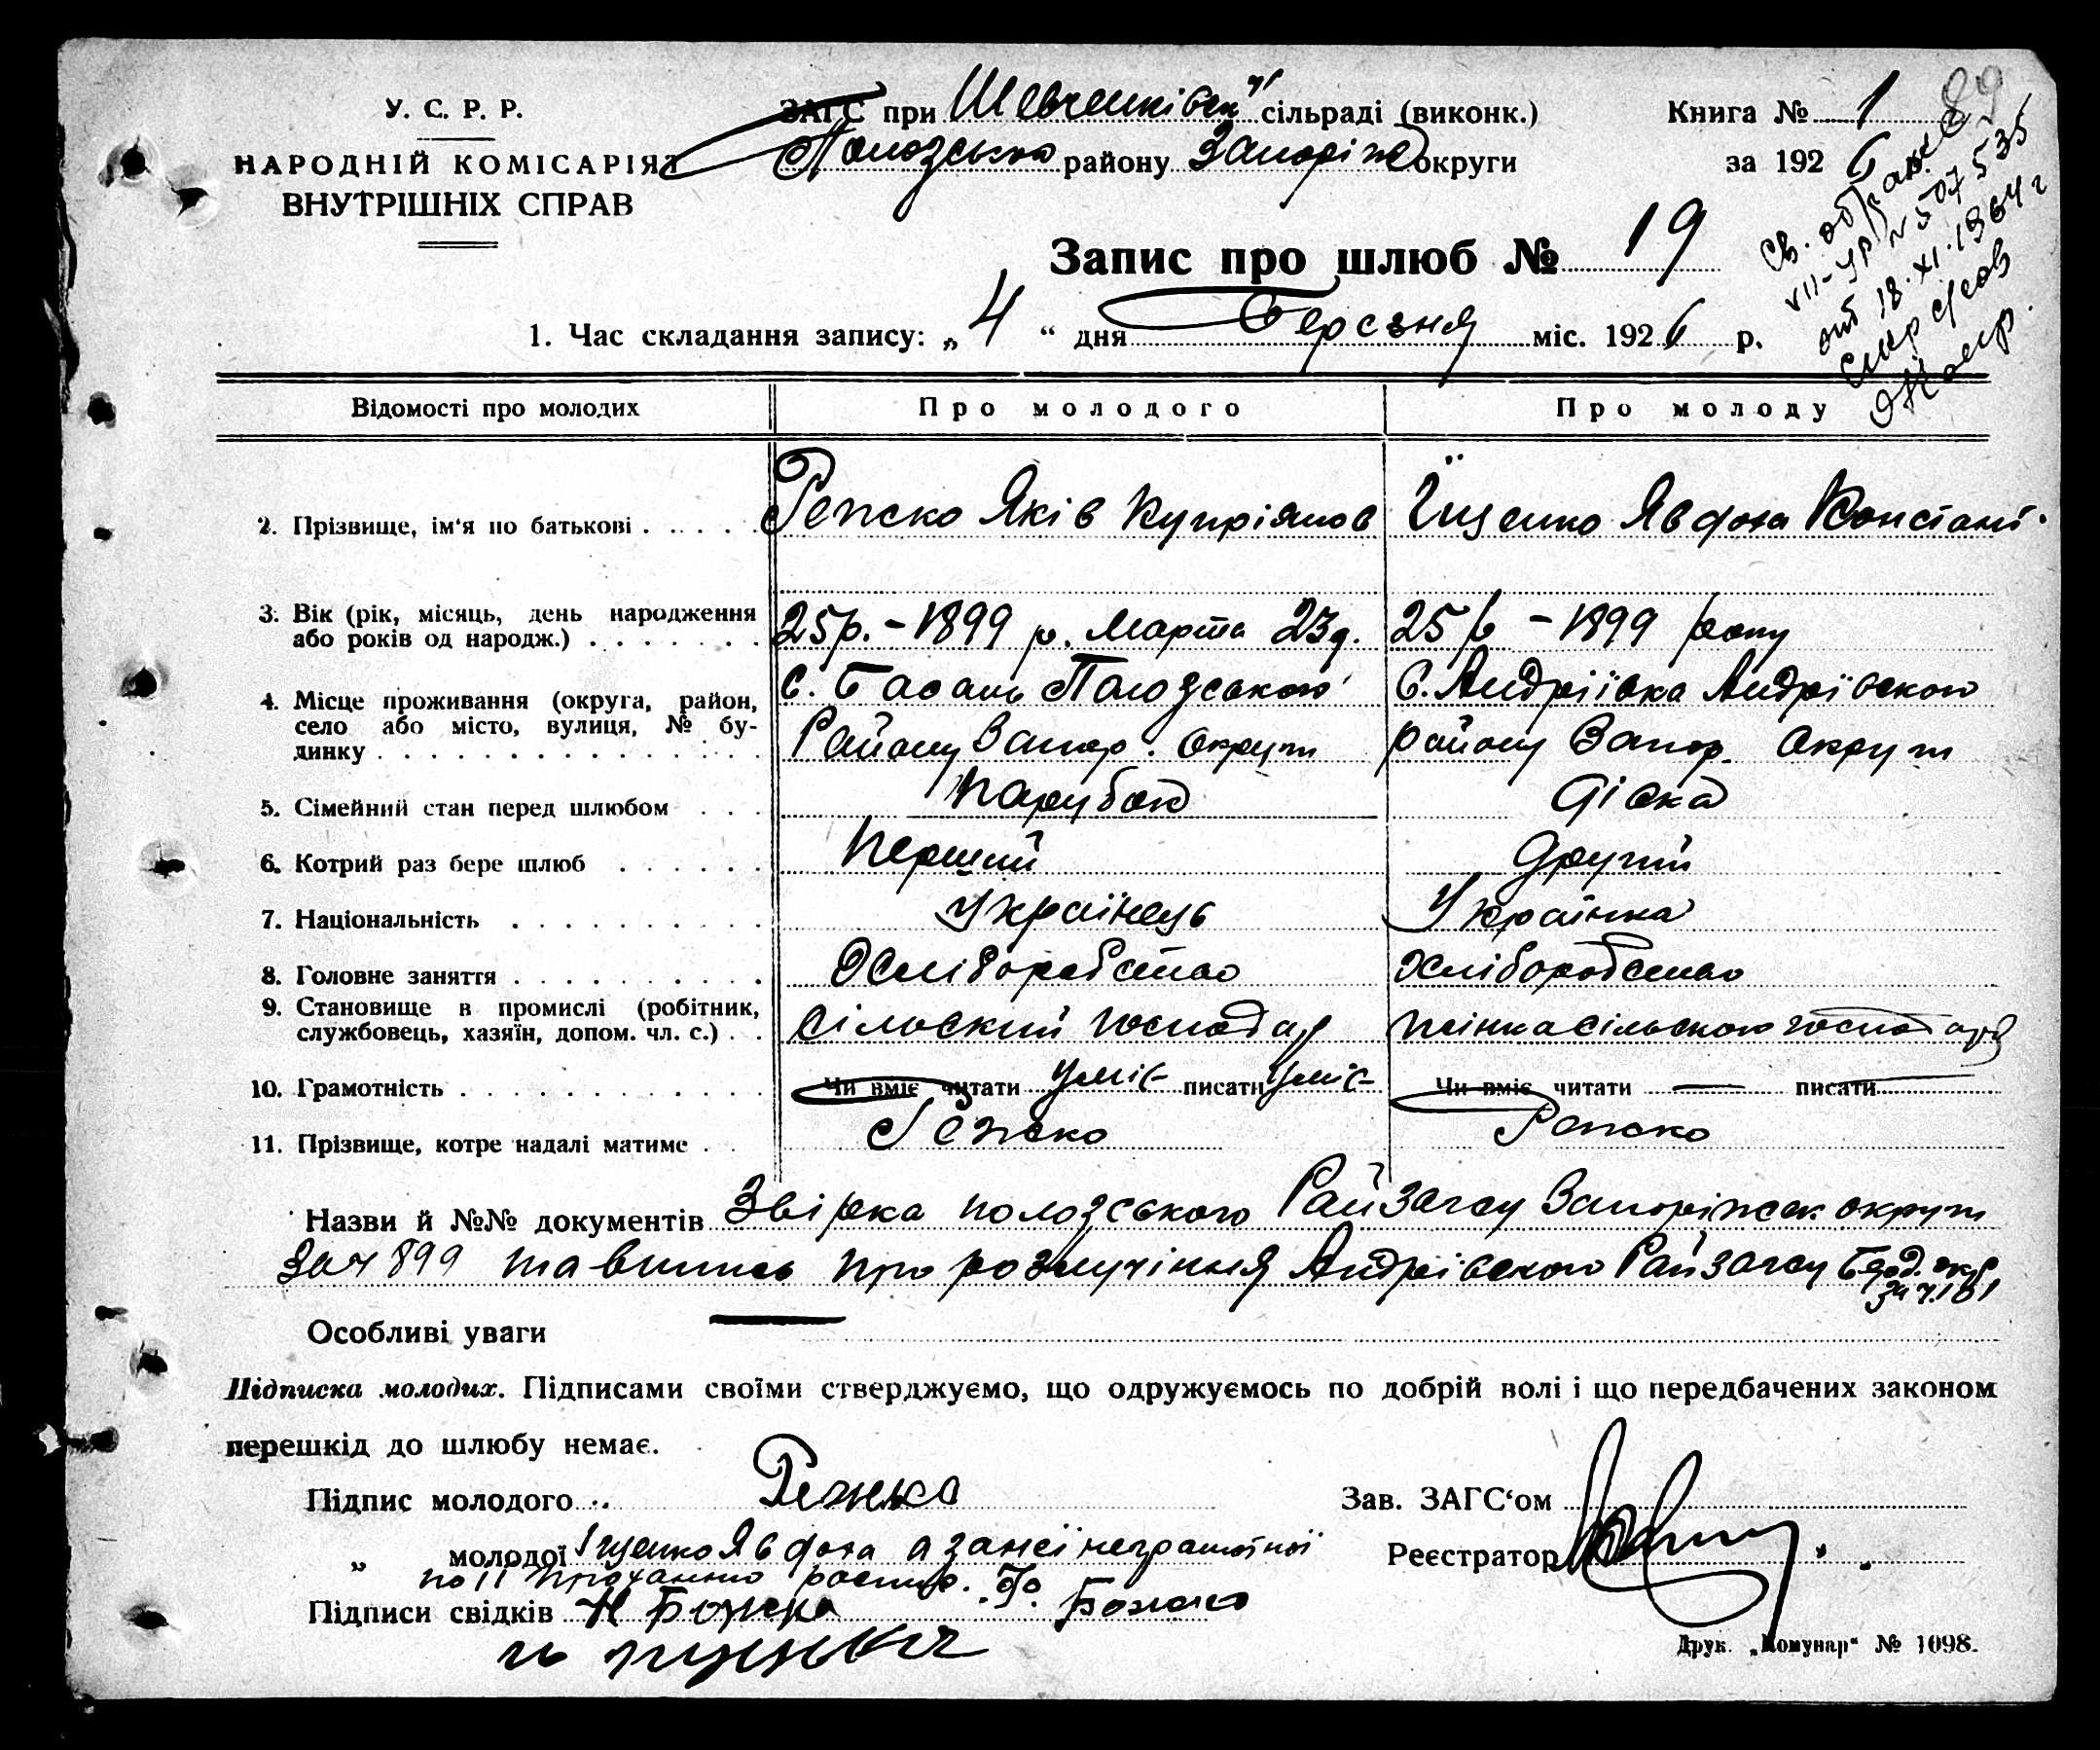 У. С. Р. Р.
НАРОДНІЙ КОМІСАРІЯТ
ВНУТРІШНІХ СПРАВ
ЗАГС при Шевченківськ сільраді (виконк.)
Пологського району Запоріж округи
Книга № 1
за 1926
89
№ 507535
от 18.XI.1964 г
Запис про шлюб № 19
1. Час складання запису: „4“ дня Березня міс. 1926 р.
Відомості про молодих Про молодого Про молоду
2. Прізвище, ім'я по батькові Репско Яків Купріянов Їщенко Явдоха Констант.
3. Вік (рік, місяць, день народження
або років од народж.) 25р. – 1899 р. Марта 23д. 25 р – 1899 року
4. Місце проживання (округа, район,
село або місто, вулиця, № бу-
динку
с. Басань Пологського
Району Запор. Округи
с. Андріївка Андрівского
району Запор. Округи
5. Сімейний стан перед шлюбом Парубок Дівка
6. Котрий раз бере шлюб Перший Другий
7. Національність Українець Українка
8. Головне заняття Хліборобство Хліборобство
9. Становище в промислі (робітник,
службовець, хазяїн, допом. чл. с.) сільский господар жінка сільського господаря
10. Грамотність Чи вміє читати уміє писати уміє Чи вміє читати — писати —
11. Прізвище, котре надалі матиме Репско Репско
Назви й №№ документів Звірка пологського Райзагсу Запоріжск округи
за ч 899 та випись про розлучіння Андрівского Райзагсу Берд. окр.
за ч. 101
Особливі уваги —
Підписка молодих. Підписами своїми стверджуємо, що одружуємось по добрій волі і що передбачених законом
перешкід до шлюбу немає.
Підпис молодого
„ молодої Іщенко Явдоха а за неї неграмотної
по її проханню роспис. Божко
Підписи свідків Н Божко
Зав. ЗАГС'ом
Реєстратор
Друк. „Комунар“ № 1098.